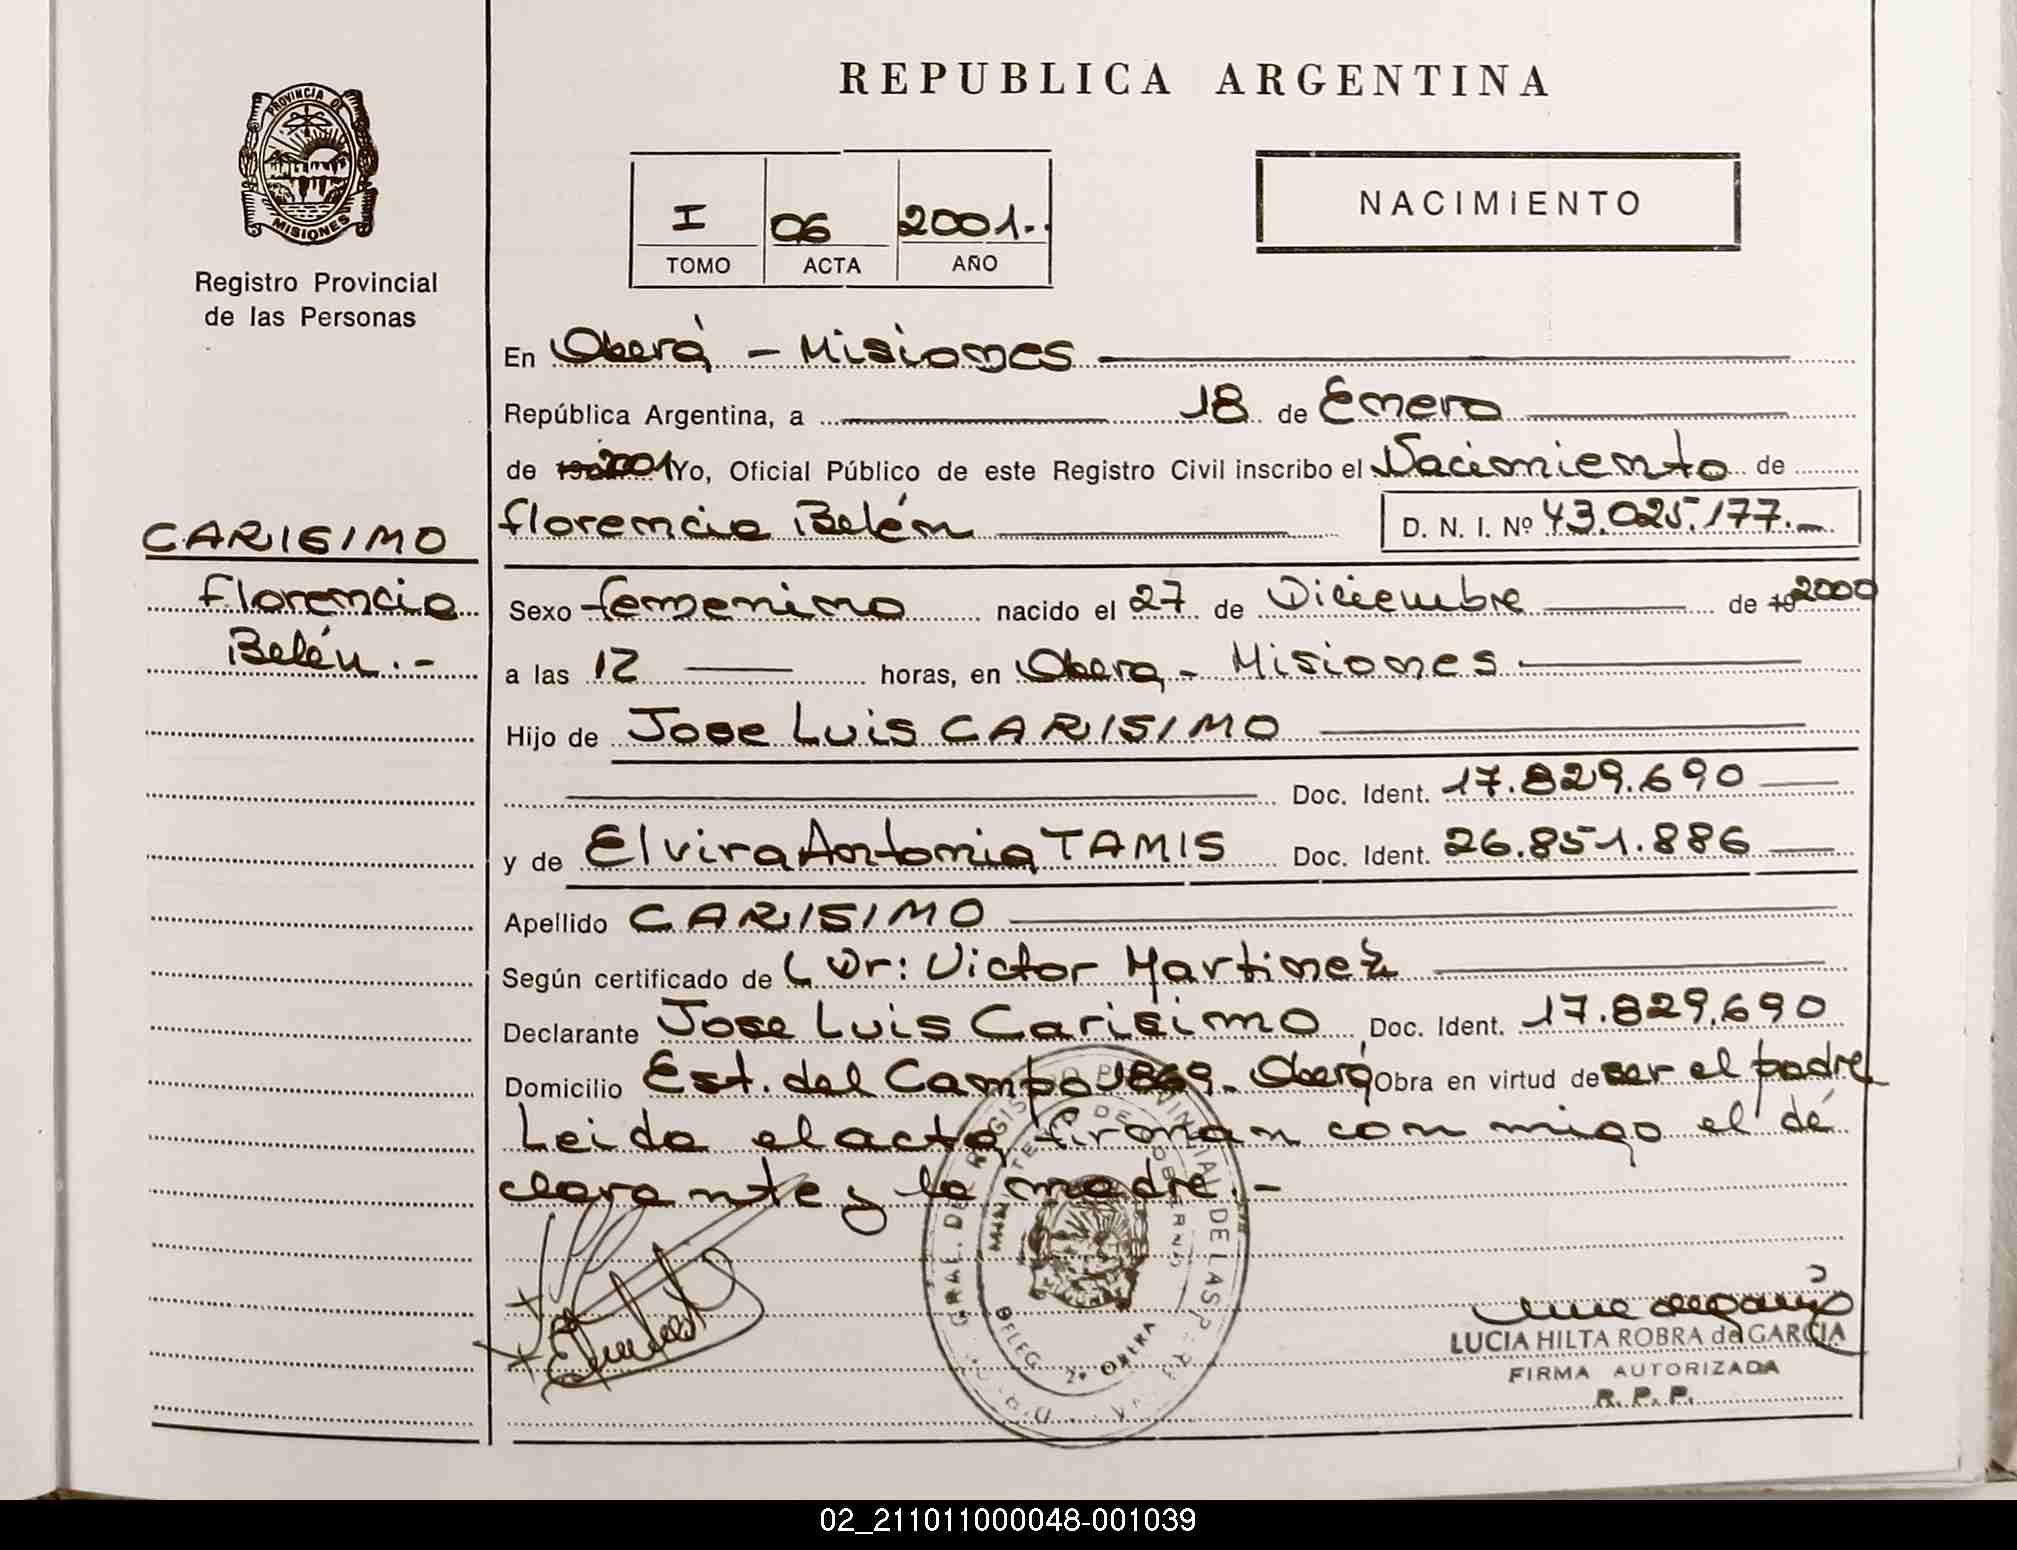 PROVINCIA DE
MISIONES
Registro Provincial
de las Personas
REPUBLICA ARGENTINA
I 06 2001.-
TOMO ACTA AÑO
NACIMIENTO
En Oberá - Misiones
República Argentina, a 18 de Enero
de 2001 Yo, Oficial Público de este Registro Civil inscribo el Nacimiento de
Florencia Belén D. N. I. Nº 43.025.177.-
CARISIMO
Florencia
Belén.-
Sexo femenino nacido el 27 de Diciembre de 19 2000
a las 12 horas, en Obera - Misiones
Hijo de Jose Luis CARISIMO
Doc. Ident. 17.829.690
y de Elvira Antonia TAMIS Doc. Ident. 26.851.886
Apellido CARISIMO
Según certificado de Dr: Victor Martinez
Declarante Jose Luis Carisimo Doc. Ident. 17.829.690
Domicilio Est. del Campo 1869- Oberá Obra en virtud de ser el padre
Leida el acta firman con migo el de
clarante y la madre.-
DELEG. 2ª OBERA
LUCIA HILTA ROBRA de GARCIA
FIRMA AUTORIZADA
R. P. P.
02_211011000048-001039